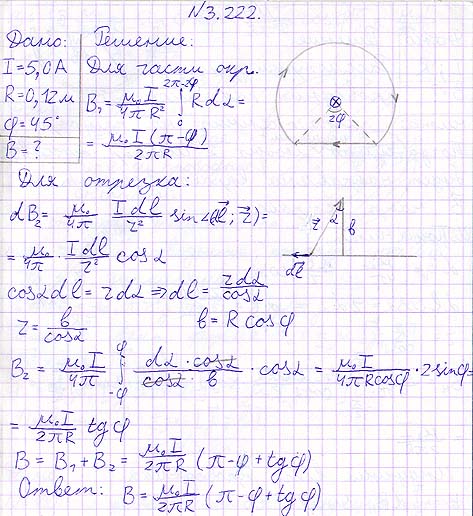 N3.222.
Дано: Решение:
I=5,0А Для части окр.
R=0,12м B₁ = μ₀I/4πR² ∫₀^(2π-2φ) Rdα =
φ=45° = μ₀I(π-φ)/2πR
B=?
2φ
Для отрезка:
dB₂ = μ₀/4π Idl/r² sin∠(dl; r)=
= μ₀/4π · Idl/r² cosα
r α b
dl
cosαdl = rdα ⇒ dl = rdα/cosα
r = b/cosα b = R cosφ
B₂ = μ₀I/4π ∫₋φ^φ dα·cosα/cosα·b · cosα = μ₀I/4πRcosφ · 2sinφ=
= μ₀I/2πR tgφ
B = B₁+B₂ = μ₀I/2πR (π-φ+tgφ)
Ответ: B = μ₀I/2πR (π-φ+tgφ)